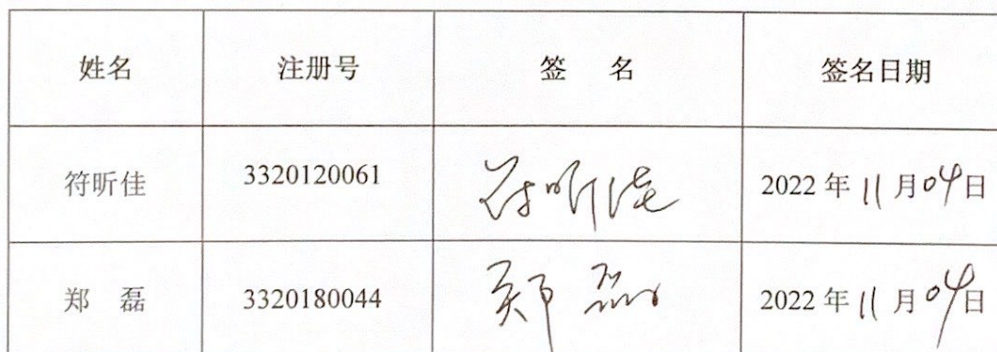 姓名 注册号 签 名 签名日期
符昕佳 3320120061 符昕佳 2022 年 11 月 04 日
郑 磊 3320180044 郑磊 2022 年 11 月 04 日